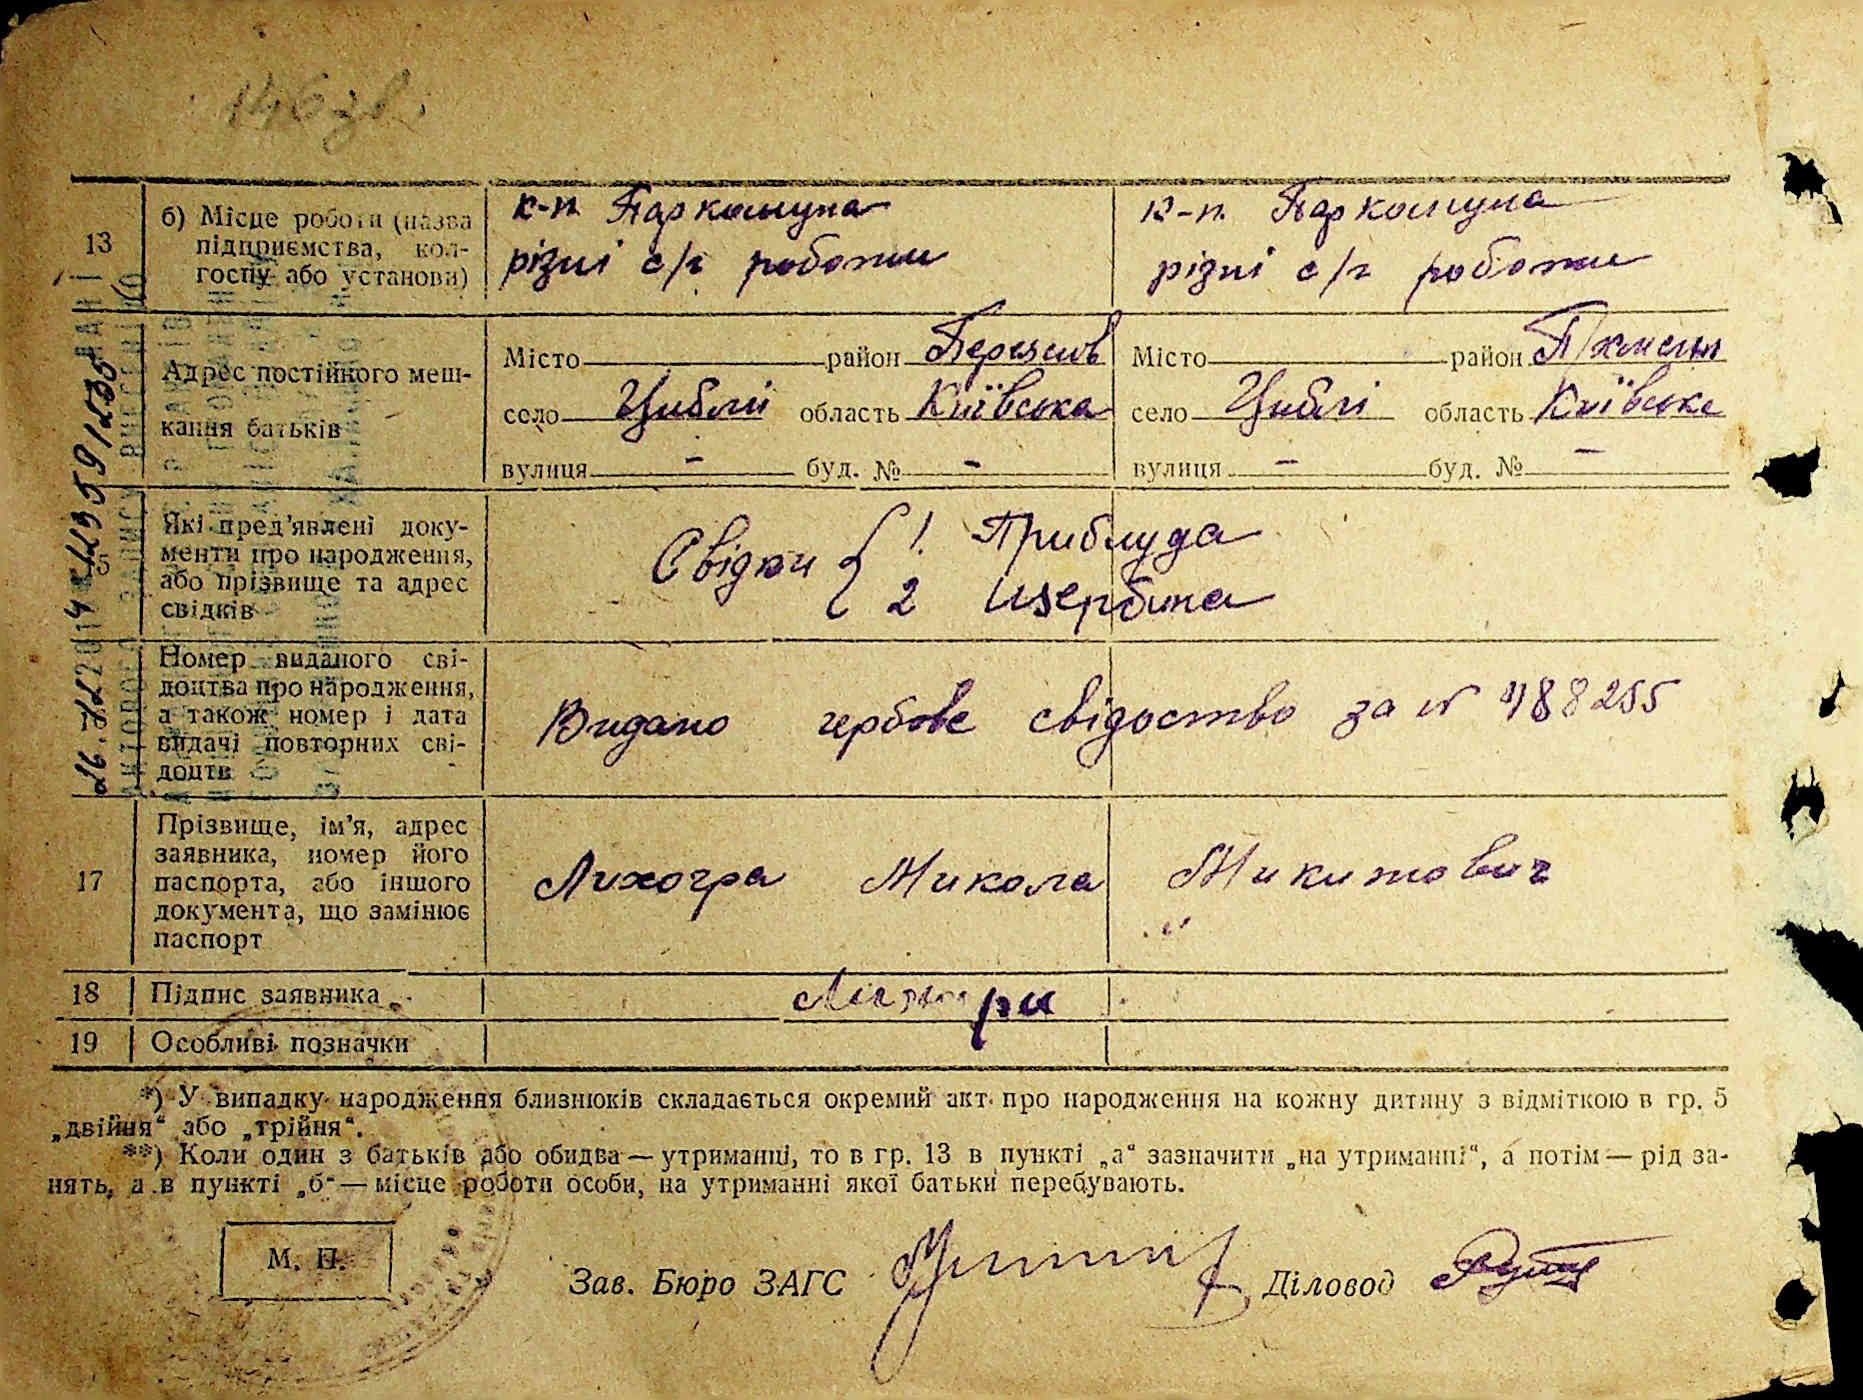 146 зв.
13
б) Місце роботи (назва
підприємства, кол-
госпу або установи)
к-п Паркомуна
різні с/г роботи
к-п. Паркомуна
різні с/г роботи
Адрес постійного меш-
кання батьків
Місто район
село Циблі область Київська
вулиця - буд. № -
Місто район
село Циблі область Київська
вулиця - буд. № -
Які пред'явлені доку-
менти про народження,
або прізвище та адрес
свідків
Свідки 1. Приблуда
2 Щербина
Номер виданого сві-
доцтва про народження,
а також номер і дата
видачі повторних сві-
доцтв
Видано гербове свідоство за №
17
Прізвище, ім'я, адрес
заявника, номер його
паспорта, або іншого
документа, що замінює
паспорт
Лихогра Микола Микитович
18 Підпис заявника
19 Особливі позначки
*) У випадку народження близнюків складається окремий акт про народження на кожну дитину з відміткою в гр. 5
„двійня“ або „трійня“.
**) Коли один з батьків або обидва — утриманці, то в гр. 13 в пункті „а“ зазначити „на утриманні“, а потім — рід за-
нять, а в пункті „б“ — місце роботи особи, на утриманні якої батьки перебувають.
М. П.
Зав. Бюро ЗАГС
Діловод